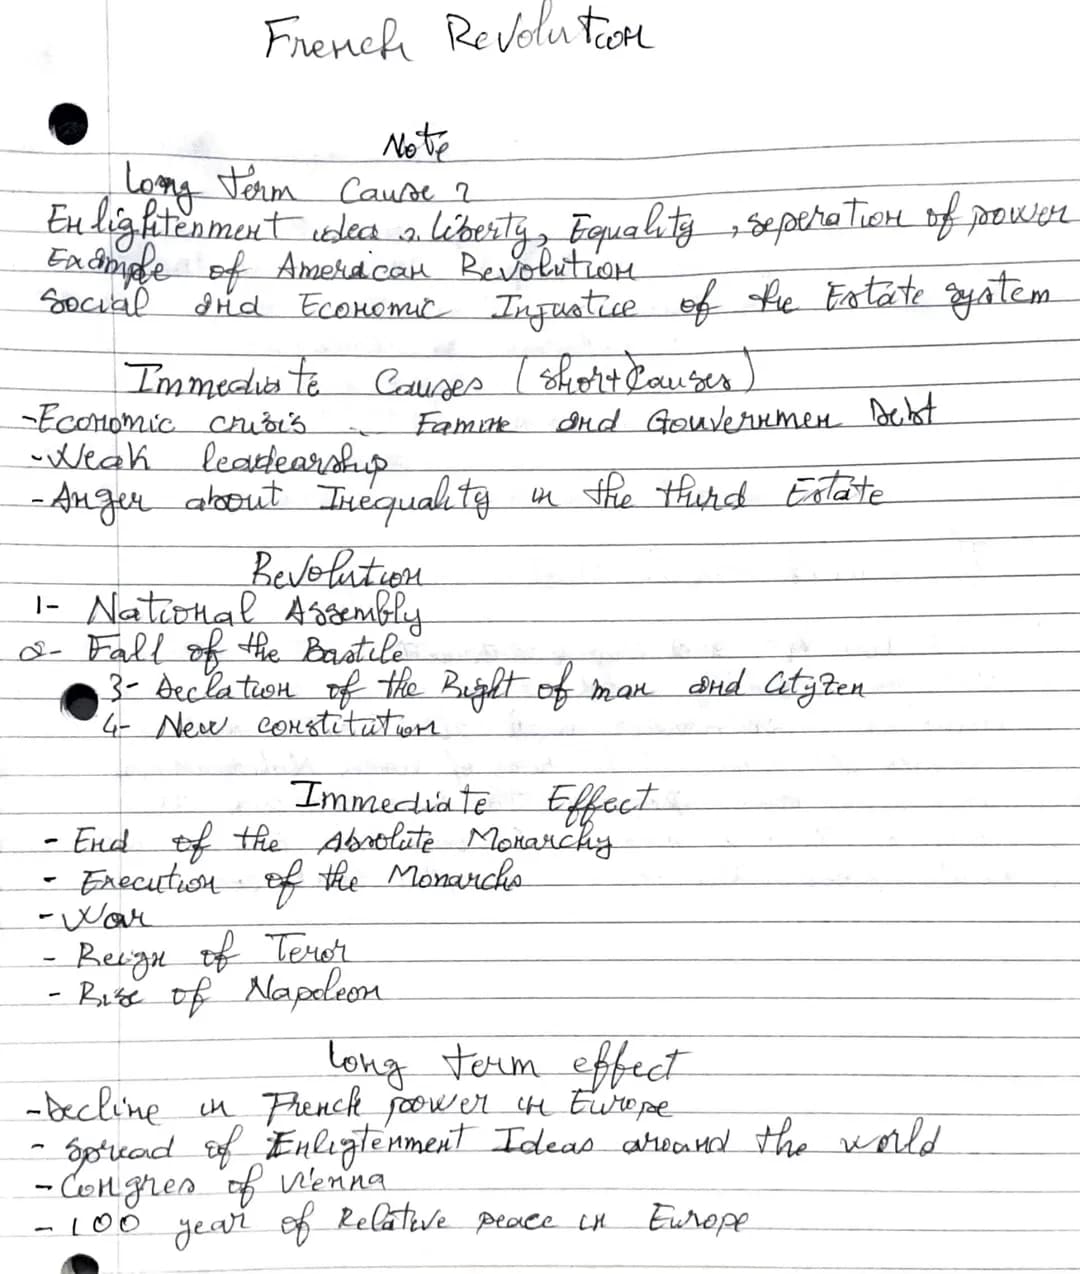 French Revolution
Note
Long Term Cause ?
Enlightenment idea : liberty, Equality, seperation of power
Example of American Revolution
Social and Economic Injustice of the Estate system
Immediate Causes (short Causes)
-Economic crisis - Famine and Gouvernmen Debt
-Weak leadearship
-Anger about Inequality in the third Estate
Revolution
1- National Assembly
2- Fall of the Bastile
3- Declation of the Right of man and Cityzen
4- New constitution
Immediate Effect
- End of the Absolute Monarchy
- Execution of the Monarchs
- War
- Reign of Teror
- Rise of Napoleon
Long term effect
-Decline in French power in Europe
- Spread of Enligtenment Ideas around the world
- Congres of Vienna
- 100 year of Relative peace in Europe